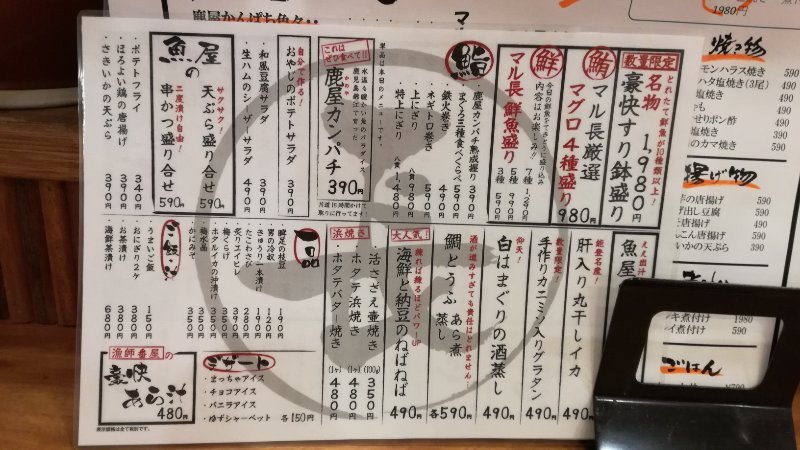 数量限定
とれたて鮮魚が10種類以上!
名物
豪快すり鉢盛り
1,980円
鮪
マル長厳選
マグロ4種盛り
980円
鮮
マル長 鮮魚盛り
今日の鮮魚をさとうように盛り込み
内容はお楽しみ!
7種 1,290円
5種 990円
3種 590円
鮨
鹿屋カンパチ熟成握り 390円
まぐろ三種食べくらべ 590円
鉄火巻き 490円
ネギトロ巻き 490円
上にぎり 八貫 980円
特上にぎり 八貫 1,480円
単品は本日のメニューです。
これはぜひ食べて!!
鹿屋カンパチ
かのや
390円
片道16時間かけて
取りに行ってます!
自分で作る!
おやじのポテトサラダ 390円
和風豆腐サラダ 390円
生ハムのシーザーサラダ 490円
魚屋の
サクサク!
天ぷら盛り合せ 590円
二度漬け自由!
串かつ盛り合せ 590円
ポテトフライ 340円
ほろよい鶏の唐揚げ 390円
さきいかの天ぷら 390円
ええ出汁
魚屋
能登名産!
肝入り丸干しイカ 490円
数量限定!
手作りカニミソ入りグラタン 490円
仰天!
白はまぐりの酒蒸し 490円
酒が進みすぎても責任はとれません!
鯛とうふ あら煮 蒸し 各590円
大人気!
練れば練るほどパワーUP
海鮮と納豆のねばねば 490円
浜焼き
活さざえ壷焼き (100g) 350円
ホタテ浜焼き (1ヶ) 480円
ホタテバター焼き (1ヶ) 480円
一品
畔足の枝豆 190円
男の冷奴 190円
きゅうり一本漬け 120円
たこわさび 280円
炙りエイヒレ 390円
梅くらげ 350円
ホタルイカの沖漬け 350円
梅水晶 350円
かにみそ 350円
ご飯・汁
うまいご飯 150円
おにぎり2ヶ 380円
お茶漬け 380円
海鮮茶漬け 680円
漁師番屋の
豪快あら汁
480円
デザート
・まっちゃアイス
・チョコアイス
・バニラアイス
・ゆずシャーベット 各150円
表示価格は全て税別です。
鹿屋かんぱち色々‥
1980円
焼き物
モンハラス焼き 490
ハタ塩焼き(3尾) 490
塩焼き
せりポン酢 490
塩焼き
のカマ焼き 590
揚げ物
の唐揚げ
出し豆腐
の唐揚げ
こん唐揚げ
いかの天ぷら
キ煮付け 1980
イ煮付け 590
ごはん